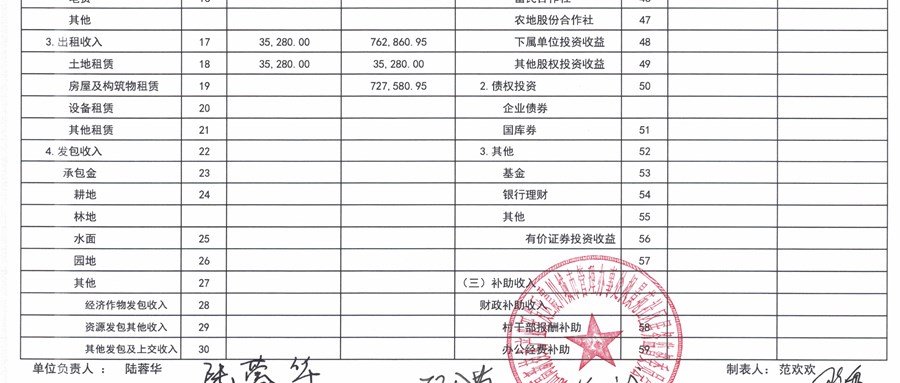 其他 农地股份合作社 47
3.出租收入 17 35,280.00 762,860.95 下属单位投资收益 48
土地租赁 18 35,280.00 35,280.00 其他股权投资收益 49
房屋及构筑物租赁 19 727,580.95 2.债权投资 50
设备租赁 20 企业债券
其他租赁 21 国库券 51
4.发包收入 22 3.其他 52
承包金 23 基金 53
耕地 24 银行理财 54
林地 其他 55
水面 25 有价证券投资收益 56
园地 26 57
其他 27 （三）补助收入
经济作物发包收入 28 财政补助收入
资源发包其他收入 29 村干部报酬补助 58
其他发包及上交收入 30 办公经费补助 59
单位负责人： 陆蓉华 陆蓉华 制表人：范欢欢